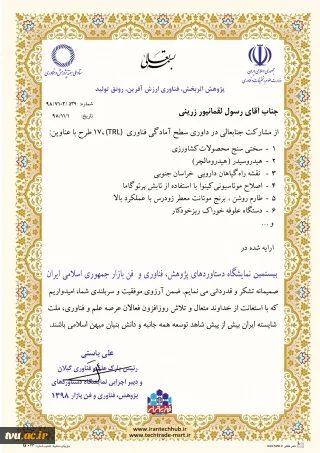 بسمه تعالی
جمهوری اسلامی ایران
وزارت علوم، تحقیقات و فناوری
پژوهش اثربخش، فناوری ارزش آفرین، رونق تولید
شماره: ۹۸/۷۱۰۲/۵۳۹
تاریخ: ۹۸/۱۱/۱
جناب آقای رسول لقمانپور زرینی
از مشارکت جنابعالی در داوری سطح آمادگی فناوری (TRL) ۱۷، طرح با عناوین:
۱ - سختی سنج محصولات کشاورزی
۲ - هیدروسیدر (هیدرومالچر)
۳ - نقشه راه گیاهان دارویی خراسان جنوبی
۴ - اصلاح موتاسیونی کینوا با استفاده از تابش پرتوگاما
۵ - طارم روشن ، برنج موتانت معطر زودرس با عملکرد بالا
۶ - دستگاه علوفه خوراک ریزخودکار
و ...
ارایه شده در
بیستمین نمایشگاه دستاوردهای پژوهش، فناوری و فن بازار جمهوری اسلامی ایران
صمیمانه تشکر و قدردانی می نمایم. ضمن آرزوی موفقیت و سربلندی شما، امیدواریم
که با استعانت از خداوند متعال و تلاش روزافزون فعالان عرصه علم و فناوری، ملت
شایسته ایران بیش از پیش شاهد توسعه همه جانبه و دانش بنیان میهن اسلامی باشند.
علی باستی
رئیس پارک علم و فناوری گیلان
و دبیر اجرایی نمایشگاه دستاوردهای
پژوهش، فناوری و فن بازار ۱۳۹۸
www.irantechhub.ir
www.techtrade-msrt.ir
tvu.ac.ir